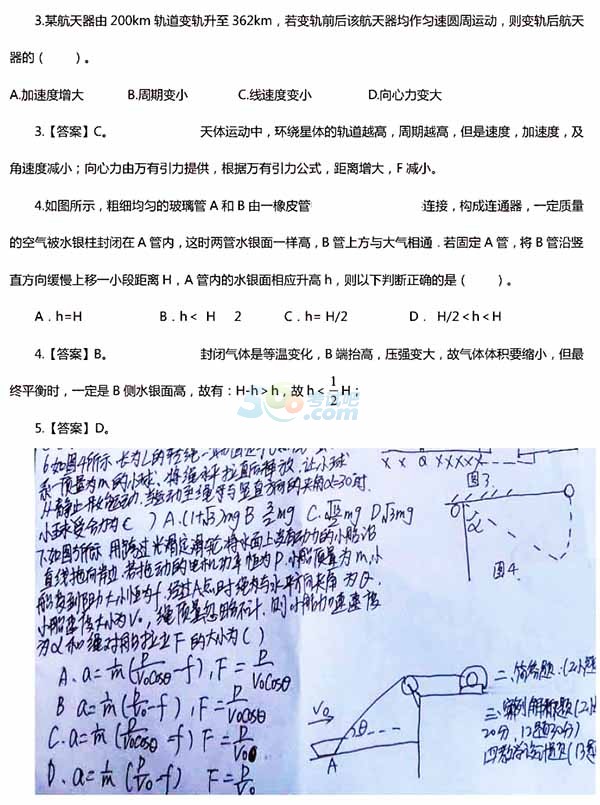 3.某航天器由 200km 轨道变轨升至 362km，若变轨前后该航天器均作匀速圆周运动，则变轨后航天
器的（　　）。
A.加速度增大　　B.周期变小　　C.线速度变小　　D.向心力变大
3.【答案】C。　　天体运动中，环绕星体的轨道越高，周期越高，但是速度，加速度，及
角速度减小；向心力由万有引力提供，根据万有引力公式，距离增大，F 减小。
4.如图所示，粗细均匀的玻璃管 A 和 B 由一橡皮管　　连接，构成连通器，一定质量
的空气被水银柱封闭在 A 管内，这时两管水银面一样高，B 管上方与大气相通．若固定 A 管，将 B 管沿竖
直方向缓慢上移一小段距离 H，A 管内的水银面相应升高 h，则以下判断正确的是（　　）。
A．h=H　　B．h< H 2　　C．h= H/2　　D． H/2<h<H
4.【答案】B。　　封闭气体是等温变化，B 端抬高，压强变大，故气体体积要缩小，但最
终平衡时，一定是 B 侧水银面高，故有：H-h＞h，故 h＜1/2 H；
306考试吧
5.【答案】D。
6.如图4所示.长为L的轻绳一
系一质量为m的小球.将绳水平拉直后释放.让小球
从静止开始运动.当运动至绳子与竖直方向的夹角α=30°时.
小球受合力为( ) A.(1+√3)mg B 3/2mg C.√ mg D√3mg
7.如图5所示.用跨过光滑定滑轮将水面上失去动力的小船沿
直线拖向岸边.若拖动的电机功率恒为P.小船质量为m,小
船受到阻力大小恒为f,经过A点时绳与水平方向夹角为θ,
小船速度大小为V₀,绳质量忽略不计.则小船加速度
为α和绳对船的拉力F的大小为( )
A. a=1/m(P/V₀cosθ-f),F=P/V₀cosθ
B a=1/m(P/V₀-f),F=P/V₀cosθ
C.a=1/m(P/V₀cosθ-f) F=P/V₀
D. a=1/m(P/V₀-f) F=P/V₀
X X a XXXXX
图3.
O
α
图4
V₀
θ
A
二.简答题.(2小题
三.案例解析题(2小
20分,12题30分)
四教学设计题(13题